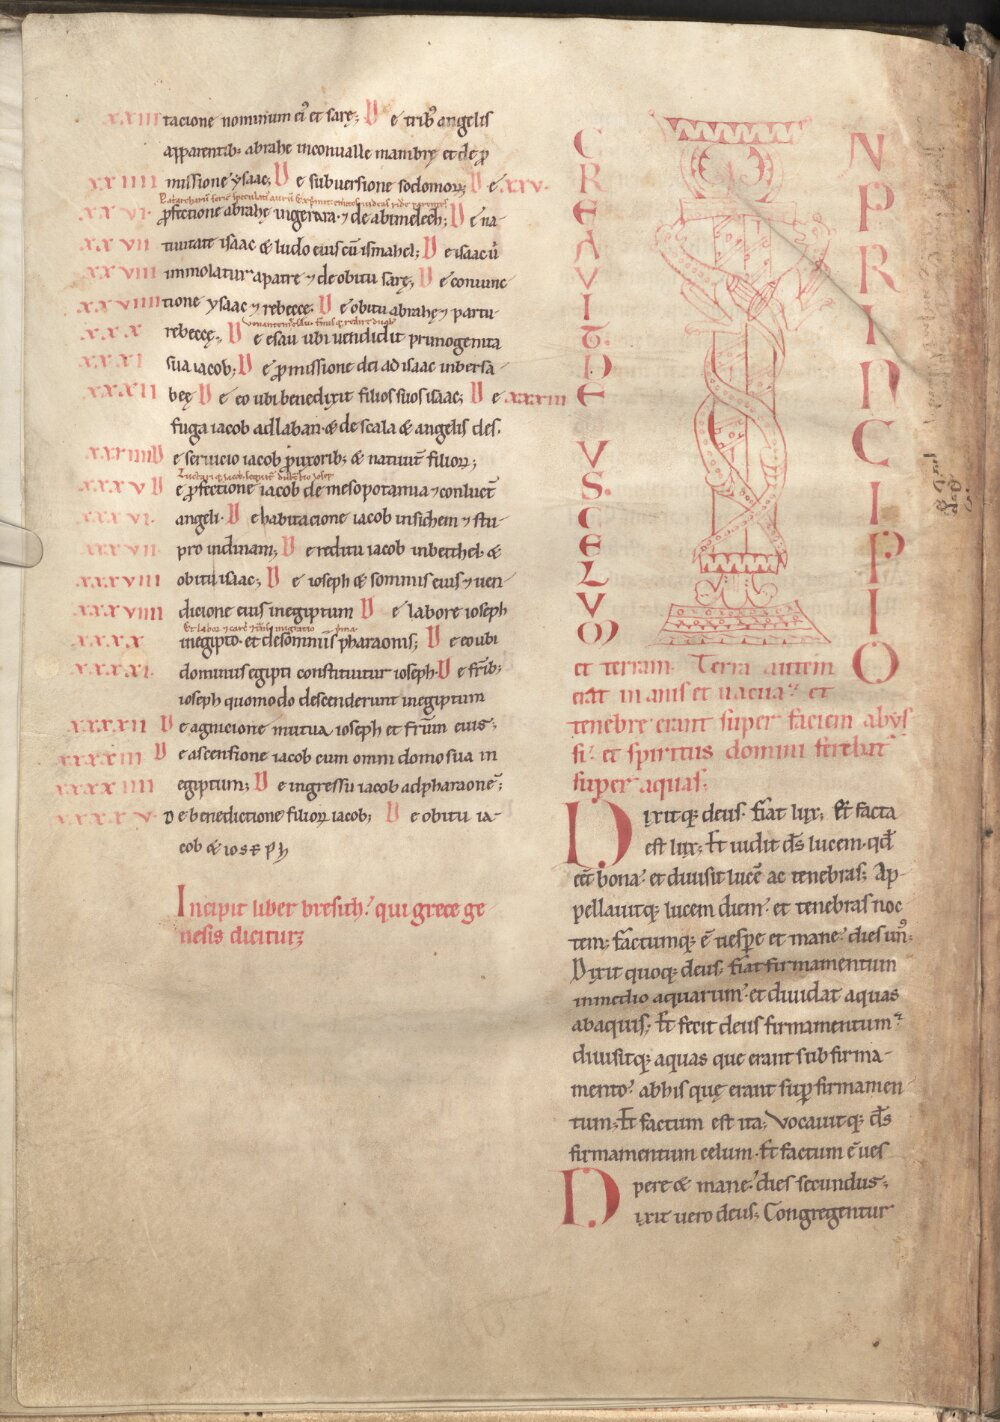 XXIII tacione nominum ei᾽ et sarę; De trib᾽ angelis
apparentib; abrahe inconualle mambrę et de p̱
XXIIII missione ẏsaac; De subuersione sodomoꝝ; De XXV.
XXVI. ꝓfectione abrahę ingerara. ⁊ de abimelech; De na-
XXVII tiuitate isaac & ludo eius cū ismahel; De isaac ū
XXVIII immolatur apatre ⁊ de obitu sarę; De coniunc-
XXVIIII tione ysaac ⁊ rebecce; De obitu abrahę ⁊ partu
XXX rebeccę; De esau ubi uendidit primogenita
XXXI sua iacob; De ꝓmissione dei ad isaac inbersa-
XXXII beę De eo ubi benedixit filios suos isaac; De XXXIII
fuga iacob adlaban. & de scala & angelis des.
XXXIIII De seruicio iacob ꝓ uxorib; & natiuit̄ filioꝝ;
XXXV De ꝓfectione iacob de mesopotamia ⁊ conluct̄
XXXVI. angeli. De habitacione iacob insichem ⁊ stu-
XXXVII pro indinam; De reditu iacob inbethel. &
XXXVIII obitu isaac; De ioseph & somniis eius ⁊ uen-
XXXVIIII dicione eius inegiptum De labore ioseph
XXXX inegipto. et de somniis pharaonis; De eo ubi
XXXXI. dominus egipti constituitur ioseph. De fr̄ib;
ioseph quomodo descenderunt inegiptum
XXXXII De agnicione mutua ioseph et fr̄um eius;
XXXXIII De ascensione iacob cum omni domo sua in
XXXXIIII egiptum; De ingressu iacob adpharaonē;
XXXXV. De benedictione filioꝝ iacob; De obitu ia-
cob & ioseph
Incipit liber bresith. qui grece ge
nesis dicitur;
N PRINCIPIO
CREAVIT. DE
VS. CELVM
et terram. Terra autem
erat inanis et uacua. et
tenebre erant super faciem abys
si. et spiritus domini ferebat᾽
super aquas;
Dixitq; deus. fiat lux; Et facta
est lux; Et uidit ds̄ lucem. qđ
eēt bona. et diuisit lucē ac tenebras; Ap-
pellauitq; lucem diem. et tenebras noc
tem; factumq; ē uesꝑe et mane. dies un᾽;
Dixit quoq; deus; fiat firmamentum
inmedio aquarum. et diuidat aquas
abaquis; Et fecit deus firmamentum
diuisitq; aquas que erant sub firma-
mento. abhis quę erant suꝑ firmamen
tum; Et factum est ita; Vocauitq; ds̄
firmamentum celum. Et factum ē ues
pere & mane. dies secundus;
Dixit uero deus; Congregentur